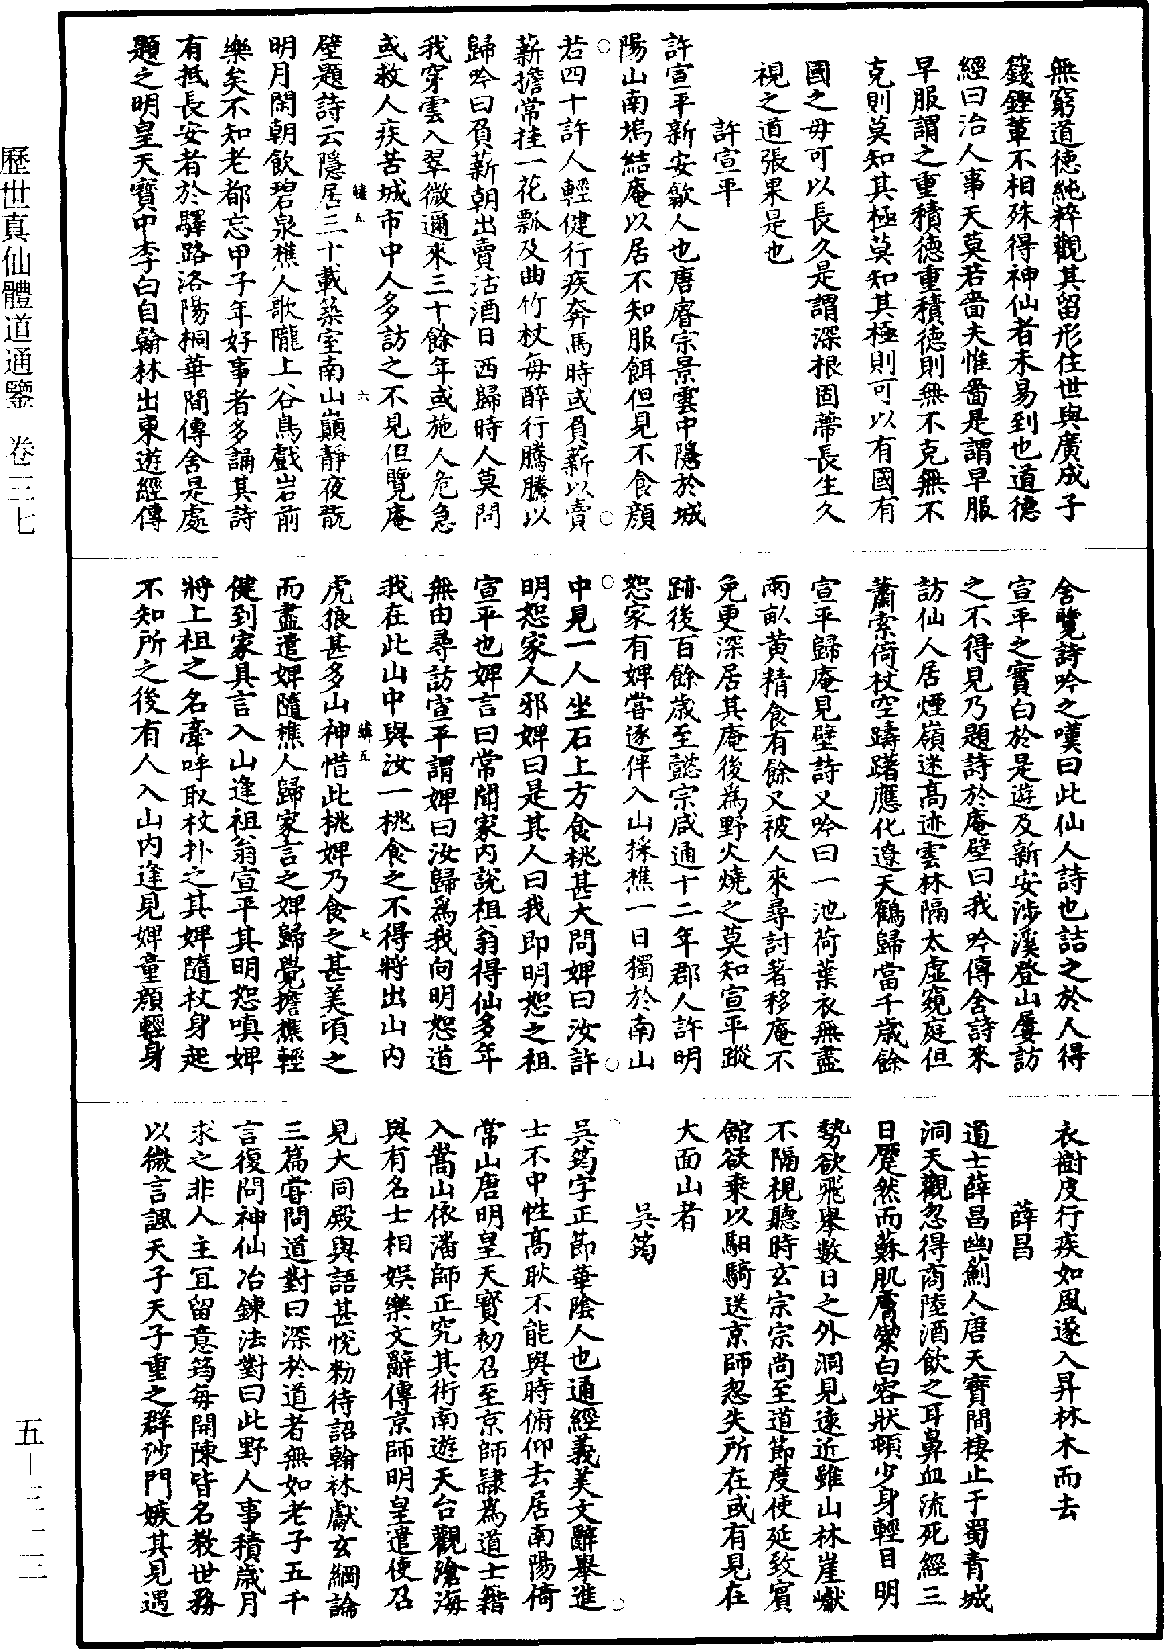 無窮道德純粹觀其留形住世與廣成子
籛鏗輩不相殊得神仙者未易到也道德
經曰治人事天莫若嗇夫惟嗇是謂早服
早服謂之重積德重積德則無不克無不
克則莫知其極莫知其極則可以有國有
國之母可以長久是謂深根固蔕長生久
視之道張果是也
許宣平
許宣平新安歙人也唐睿宗景雲中隱於城
陽山南塢結庵以居不知服餌但見不食顔
若四十許人輕健行疾奔馬時或負薪以賣
薪擔常挂一花瓢及曲竹杖每醉行騰騰以
歸吟曰負薪朝出賣沽酒日西歸時人莫問
我穿雲入翠微邇來三十餘年或施人危急
或救人疾苦城市中人多訪之不見但覽庵
壁題詩云隱居三十載築室南山巔靜夜翫
明月閑朝飲碧泉樵人歌隴上谷鳥戲岩前
樂矣不知老都忘甲子年好事者多誦其詩
有抵長安者於驛路洛陽桐華間傳舍是處
題之明皇天寶中李白自翰林出東遊經傳
舍覽詩吟之嘆曰此仙人詩也詰之於人得
宣平之實白於是遊及新安涉溪登山屢訪
之不得見乃題詩於庵壁曰我吟傳舍詩來
訪仙人居煙嶺迷高迹雲林隔太虛窺庭但
蕭索倚杖空躊躇應化遼天鶴歸當千歲餘
宣平歸庵見壁詩又吟曰一池荷葉衣無盡
兩畝黄精食有餘又被人來尋討著移庵不
免更深居其庵後為野火燒之莫知宣平蹤
跡後百餘歲至懿宗咸通十二年郡人許明
恕家有婢嘗逐伴入山採樵一日獨於南山
中見一人坐石上方食桃甚大問婢曰汝許
明恕家人邪婢曰是其人曰我即明恕之祖
宣平也婢言曰常聞家內說祖翁得仙多年
無由尋訪宣平謂婢曰汝歸爲我向明恕道
我在此山中與汝一桃食之不得將出山内
虎狼甚多山神惜此桃婢乃食之甚美頃之
而盡遣婢隨樵人歸家言之婢歸覺擔樵輕
健到家具言入山逢祖翁宣平其明恕嗔婢
將上祖之名牽呼取杖扑之其婢隨杖身起
不知所之後有人入山内逢見婢童顔輕身
衣樹皮行疾如風遂入昇林木而去
薛昌
道士薛昌幽薊人唐天寶間棲止于蜀青城
洞天觀忽得商陸酒飲之耳鼻血流死經三
日蹷然而蘇肌膚瑩白容狀頓少身輕目明
勢欲飛舉數日之外洞見遠近雖山林崖巘
不隔視聽時玄宗宗尚至道節度使延致賓
館欲乘以馹騎送京師忽失所在或有見在
大面山者
吳筠
吳筠字正節華陰人也通經義美文辭舉進
士不中性高耿不能與時俯仰去居南陽倚
常山唐明皇天寶初召至京師隷爲道士籍
入嵩山依潘師正究其術南遊天台觀滄海
與有名士相娱樂文辭傳京師明皇遣使召
見大同殿與語甚悅勑待詔翰林獻玄綱論
三篇嘗問道對曰深於道者無如老子五千
言復問神仙冶鍊法對曰此野人事積歲月
求之非人主宜留意筠每開陳皆名教世務
以微言諷天子天子重之群沙門嫉其見遇
歷世真仙體道通鑒 卷三七
五－三一二